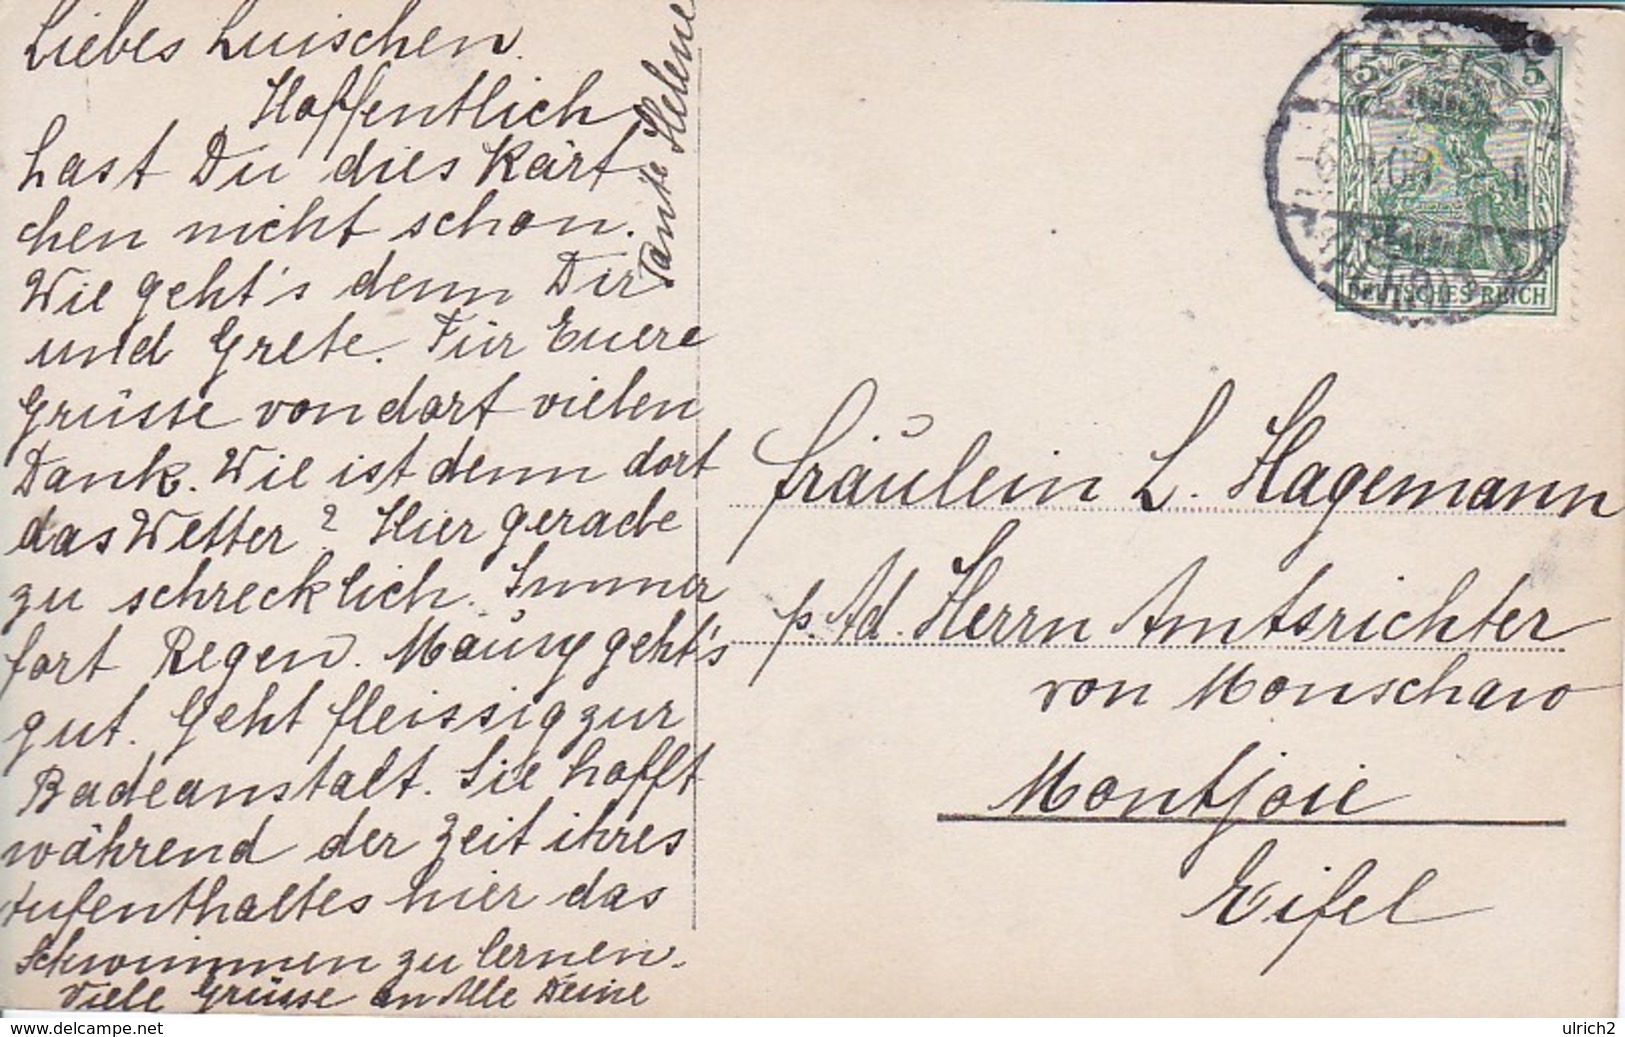 Liebes Luischen.
Hoffentlich
hast Du dies Kärt
chen nicht schon.
Wie geht's denn Dir
und Grete. Für Euere
Grüsse von dort vielen
Dank. Wie ist denn dort
das Wetter? Hier gerade
zu schrecklich. Immer
fort Regen. Mäusy geht's
gut. Geht fleissig zur
Badeanstalt. Sie hofft
während der Zeit ihres
Aufenthaltes hier das
Schwimmen zu lernen.
Viele Grüsse an Alle Deine
Tante Helene
5 5
DEUTSCHES REICH
Fräulein L. Hagemann
p. Ad. Herrn Amtsrichter
von Monschaw
Montjoie
Eifel
www.delcampe.net
ulrich2